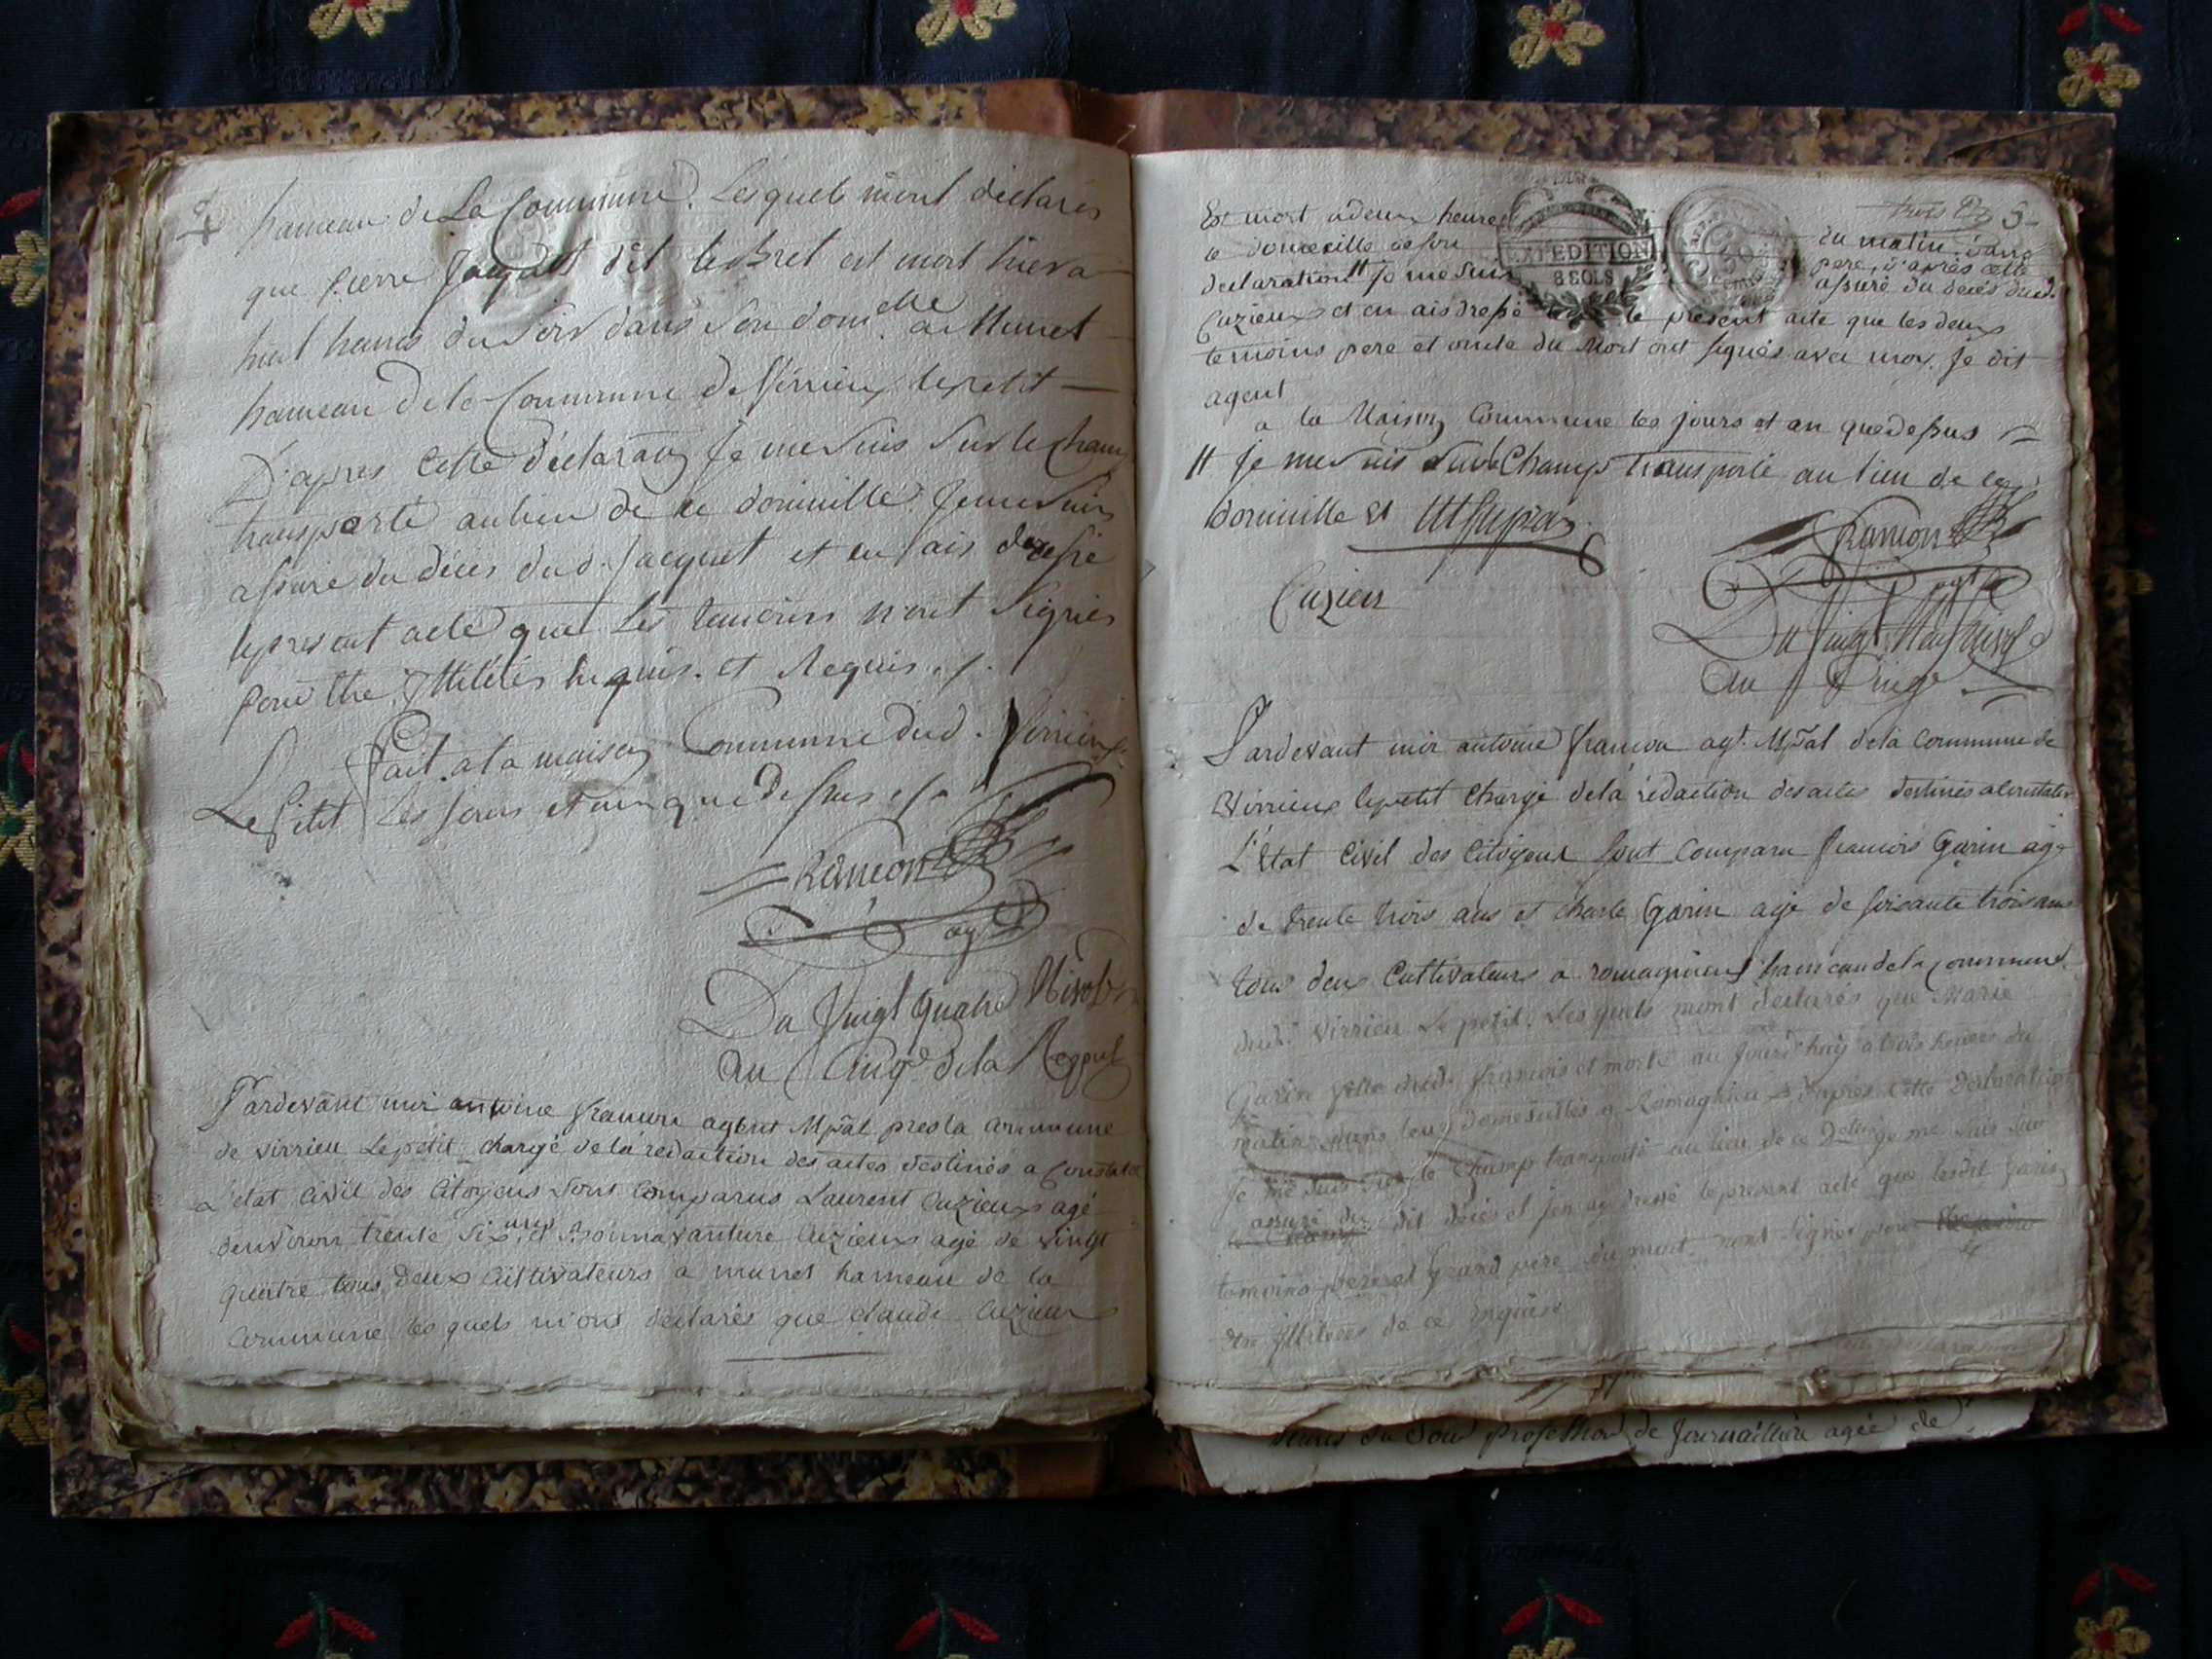 4
hameau de La Commune. Lesquels m'ont déclarés
que pierre Jacquet dit le bret est mort hier a
huit heures du soir dans son dom.elle a Munet
hameau de la Commune de Virrieu le petit
D'apres Cette déclaraon Je me suis sur le Champ
transporté au lieu de ce domicille. Je me suis
assuré du décés dud. Jacquet et en ais dressé
le present acte que les temoins n'ont signés
pour être Illiterés enquis. et Requis ./.
Fait a la maison Commune dud. Virrieux
Le Petit les Jours et an que dessus ./.
francon
agt
Du Vingt quatre Nivose
an Cinqe de la Repub
Pardevant moi antoine francon agent Mpal pres la commune
de virrieu Le petit chargé de la rédaction des actes destinés a Constater
l'état civil des Citoyens sont Comparus Laurent Cuzieux agé
d'environ trente six ans et Bonnavanture Cuzieux agé de vingt
quatre tous deux Cultivateurs a munet hameau de la
commune les quels m'ont déclarés que claude Cuzieux
trois 5
Est mort a deux heures du matin dans
le domicille de son pere, d'après cette
declaration # Je me suis assuré du décés dud.
Cuzieux et en ais dressé le présent acte que les deux
temoins pere et oncle du Mort ont signés avec moi. Je dit
agent
a la Maison Commune les jours et an que dessus
# Je me suis sur le Champ transporté au lieu de ce
domicille et
EXPEDITION
8 SOLS
50
Cuzieu
francon
agt
Du Vingt Neuf Nivose
an Cinqe
Pardevant moi antoine francon agt. Mpal de la Commune de
Virrieux le petit Chargé de la rédaction des actes destinés a Constater
L'état Civil des Citoyens sont Comparu francois Garin agé
de trente trois ans et charle Garin agé de soixante trois ans
tous deux Cultivateurs a romagnieux hameau de la commune
dud. virrieu Le petit. Les quels m'ont déclarés que Marie
Garin fille dud. francois est morte au Jourd'huy a trois heures du
matin dans leur domesilles a Romagnieu d'apres Cette Declaration
Je me suis sur le Champ transporté au lieu de ce Je me suis
assuré du dit décés et j'en ay dressé le present acte que lesdit Garin
temoins pere et Grand pere du mort n'ont signés pour
etre Illiteres de ce enquis
heures du Soir profession de Journailliere agée de